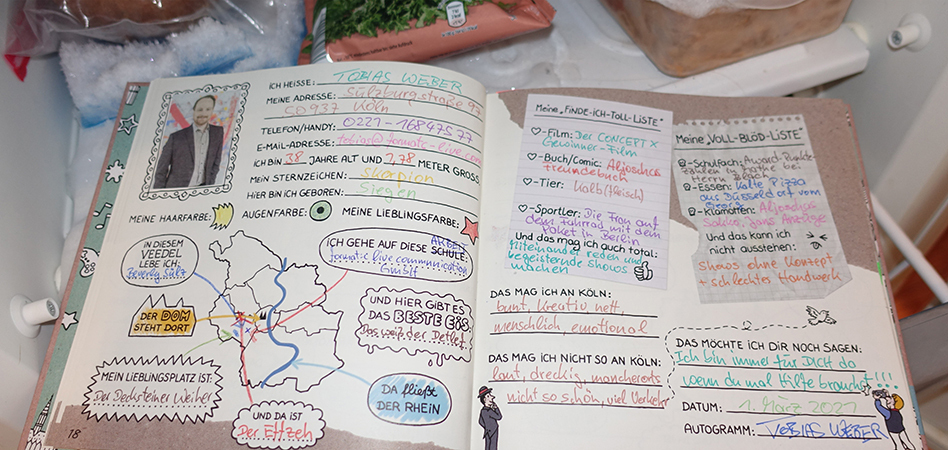 ICH HEISSE: TOBIAS WEBER
MEINE ADRESSE: Sülzburgstraße 97
50937 Köln
TELEFON/HANDY: 0221-16847577
E-MAIL-ADRESSE: tobias@formate-live.com
ICH BIN 38 JAHRE ALT UND 1,78 METER GROSS
MEIN STERNZEICHEN: Skorpion
HIER BIN ICH GEBOREN: Siegen
MEINE HAARFARBE: AUGENFARBE: MEINE LIEBLINGSFARBE:
IN DIESEM
VEEDEL
LEBE ICH:
Sülz
DER DOM
STEHT DORT
MEIN LIEBLINGSPLATZ IST:
Der Decksteiner Weiher
ICH GEHE AUF DIESE SCHULE:
formate live communication
GmbH
UND HIER GIBT ES
DAS BESTE EIS:
Das weiß der Detlef
DA fließt
DER RHEIN
UND DA IST
Der Effzeh
18
Meine „FINDE-ICH-TOLL-LISTE"
-Film: Der CONCEPT X
Gewinner-Film
-Buch/Comic: Aljoschas
Freundebuch
-Tier: Kalb(fleisch)
-Sportler: Die Frau auf
dem Fahrrad mit dem
Paket in Berlin
Und das mag ich auch total:
Miteinander reden und
begeisternde Shows
machen
Meine „VOLL-BLÖD-LISTE"
-Schulfach: Award-Punkte-
zählen in Mathe bei
-Essen: Kalte Pizza
aus Düsseldorf vom
-Klamotten: Aljoschas
Sakko, Jans Anzüge
Und das kann ich
nicht ausstehen:
Shows ohne Konzept
+ schlechtes Handwerk
DAS MAG ICH AN KÖLN:
bunt, kreativ, nett,
menschlich, emotional
DAS MAG ICH NICHT SO AN KÖLN:
laut, dreckig, mancherorts
nicht so schön, viel Verkehr
DAS MÖCHTE ICH DIR NOCH SAGEN:
Ich bin immer für DICH da
wenn du mal Hilfe brauchst!!!
DATUM: 1. März 2021
AUTOGRAMM: TOBIAS WEBER